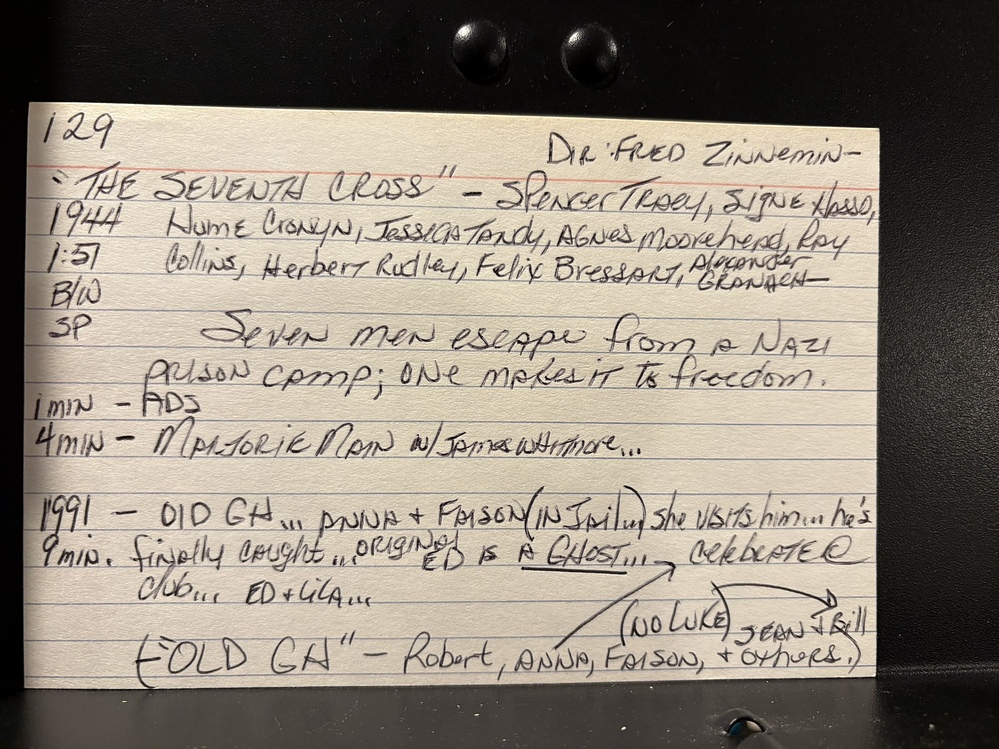 129
Dir: FRED Zinnemin-
"THE SEVENTH CROSS" - SPENCER TRACY, SIGNE HASSO,
1944 Hume Cronyn, Jessica Tandy, Agnes Moorehead, Ray
1:51 Collins, Herbert Rudley, Felix Bressart, Alexander GRANACH-
B/W
SP Seven men escape from a NAZI
prison camp; one makes it to freedom.
1 min - ADS
4 min - MARJORIE MAIN w/ James Whitmore...
1991 - OLD GH... ANNA + FAISON (IN JAIL...) she visits him... he's
9 min. finally caught... ORIGINAL ED is A GHOST... celebrate @
club... ED + LILA...
(NO LUKE) SEAN + Bill
("OLD GH" - Robert, ANNA, FAISON, + others.)